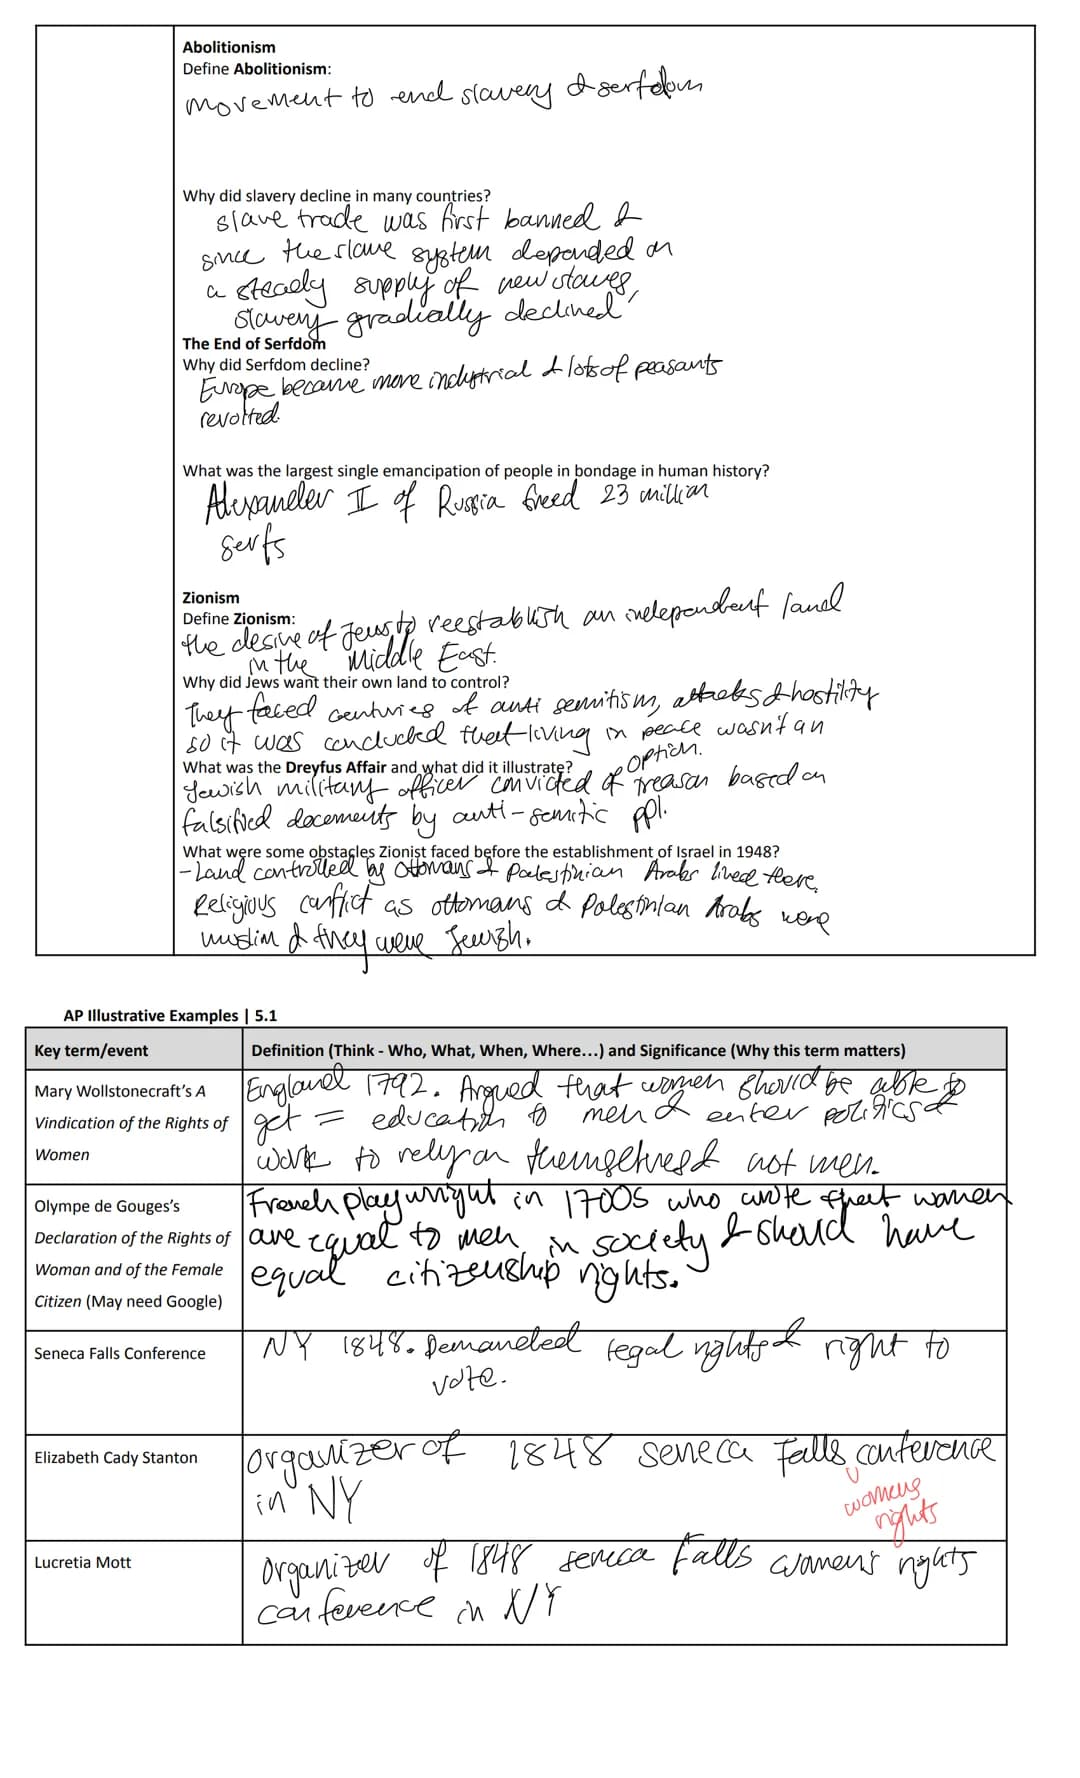 Abolitionism
Define Abolitionism:
movement to end slavery & serfdom
Why did slavery decline in many countries?
slave trade was first banned &
since the slave system depended on
a steady supply of new slaves,
slavery gradually declined
The End of Serfdom
Why did Serfdom decline?
Europe became more industrial & lots of peasants
revolted.
What was the largest single emancipation of people in bondage in human history?
Alexander II of Russia freed 23 million
serfs
Zionism
Define Zionism:
the desire of Jews to reestablish an independent land
in the Middle East.
Why did Jews want their own land to control?
They faced centuries of anti semitism, attacks & hostility
so it was concluded that living in peace wasn't an
option.
What was the Dreyfus Affair and what did it illustrate?
Jewish military officer convicted of treason based on
falsified docements by anti-semitic ppl.
What were some obstacles Zionist faced before the establishment of Israel in 1948?
- Land controlled by Ottomans & Palestinian Arabs lived there.
Religious conflict as ottomans & Palestinian Arabs were
muslim & they were Jewish.
AP Illustrative Examples | 5.1
Key term/event
Definition (Think - Who, What, When, Where...) and Significance (Why this term matters)
Mary Wollstonecraft's A
Vindication of the Rights of
Women
England 1792. Argued that women should be able to
get = education to men & enter politics &
work to rely on themselves & not men.
Olympe de Gouges's
Declaration of the Rights of
Woman and of the Female
Citizen (May need Google)
French playwright in 1700s who wrote that women
are equal to men in society & should have
equal citizenship rights.
Seneca Falls Conference
NY 1848. Demanded legal rights & right to
vote.
Elizabeth Cady Stanton
organizer of 1848 seneca Falls conference
in NY
womens
rights
Lucretia Mott
Organizer of 1848 seneca Falls women's rights
conference in NY